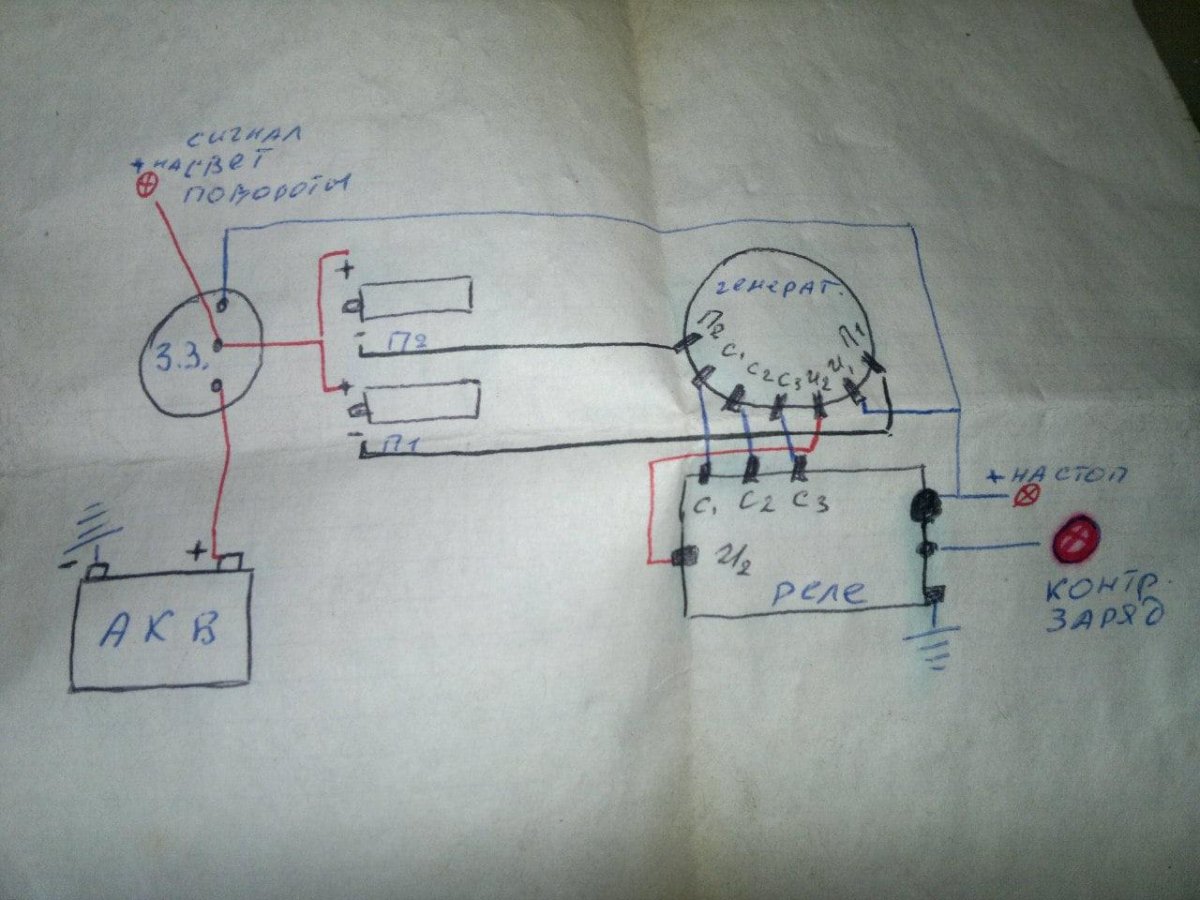 сигнал
+ на свет
повороты
З.З.
+
-
П2
+
-
П1
генерат.
П2
С1
С2
С3
И2
И1
П1
С1
С2
С3
И2
реле
+ на стоп
контр.
заряд
-
+
АКВ